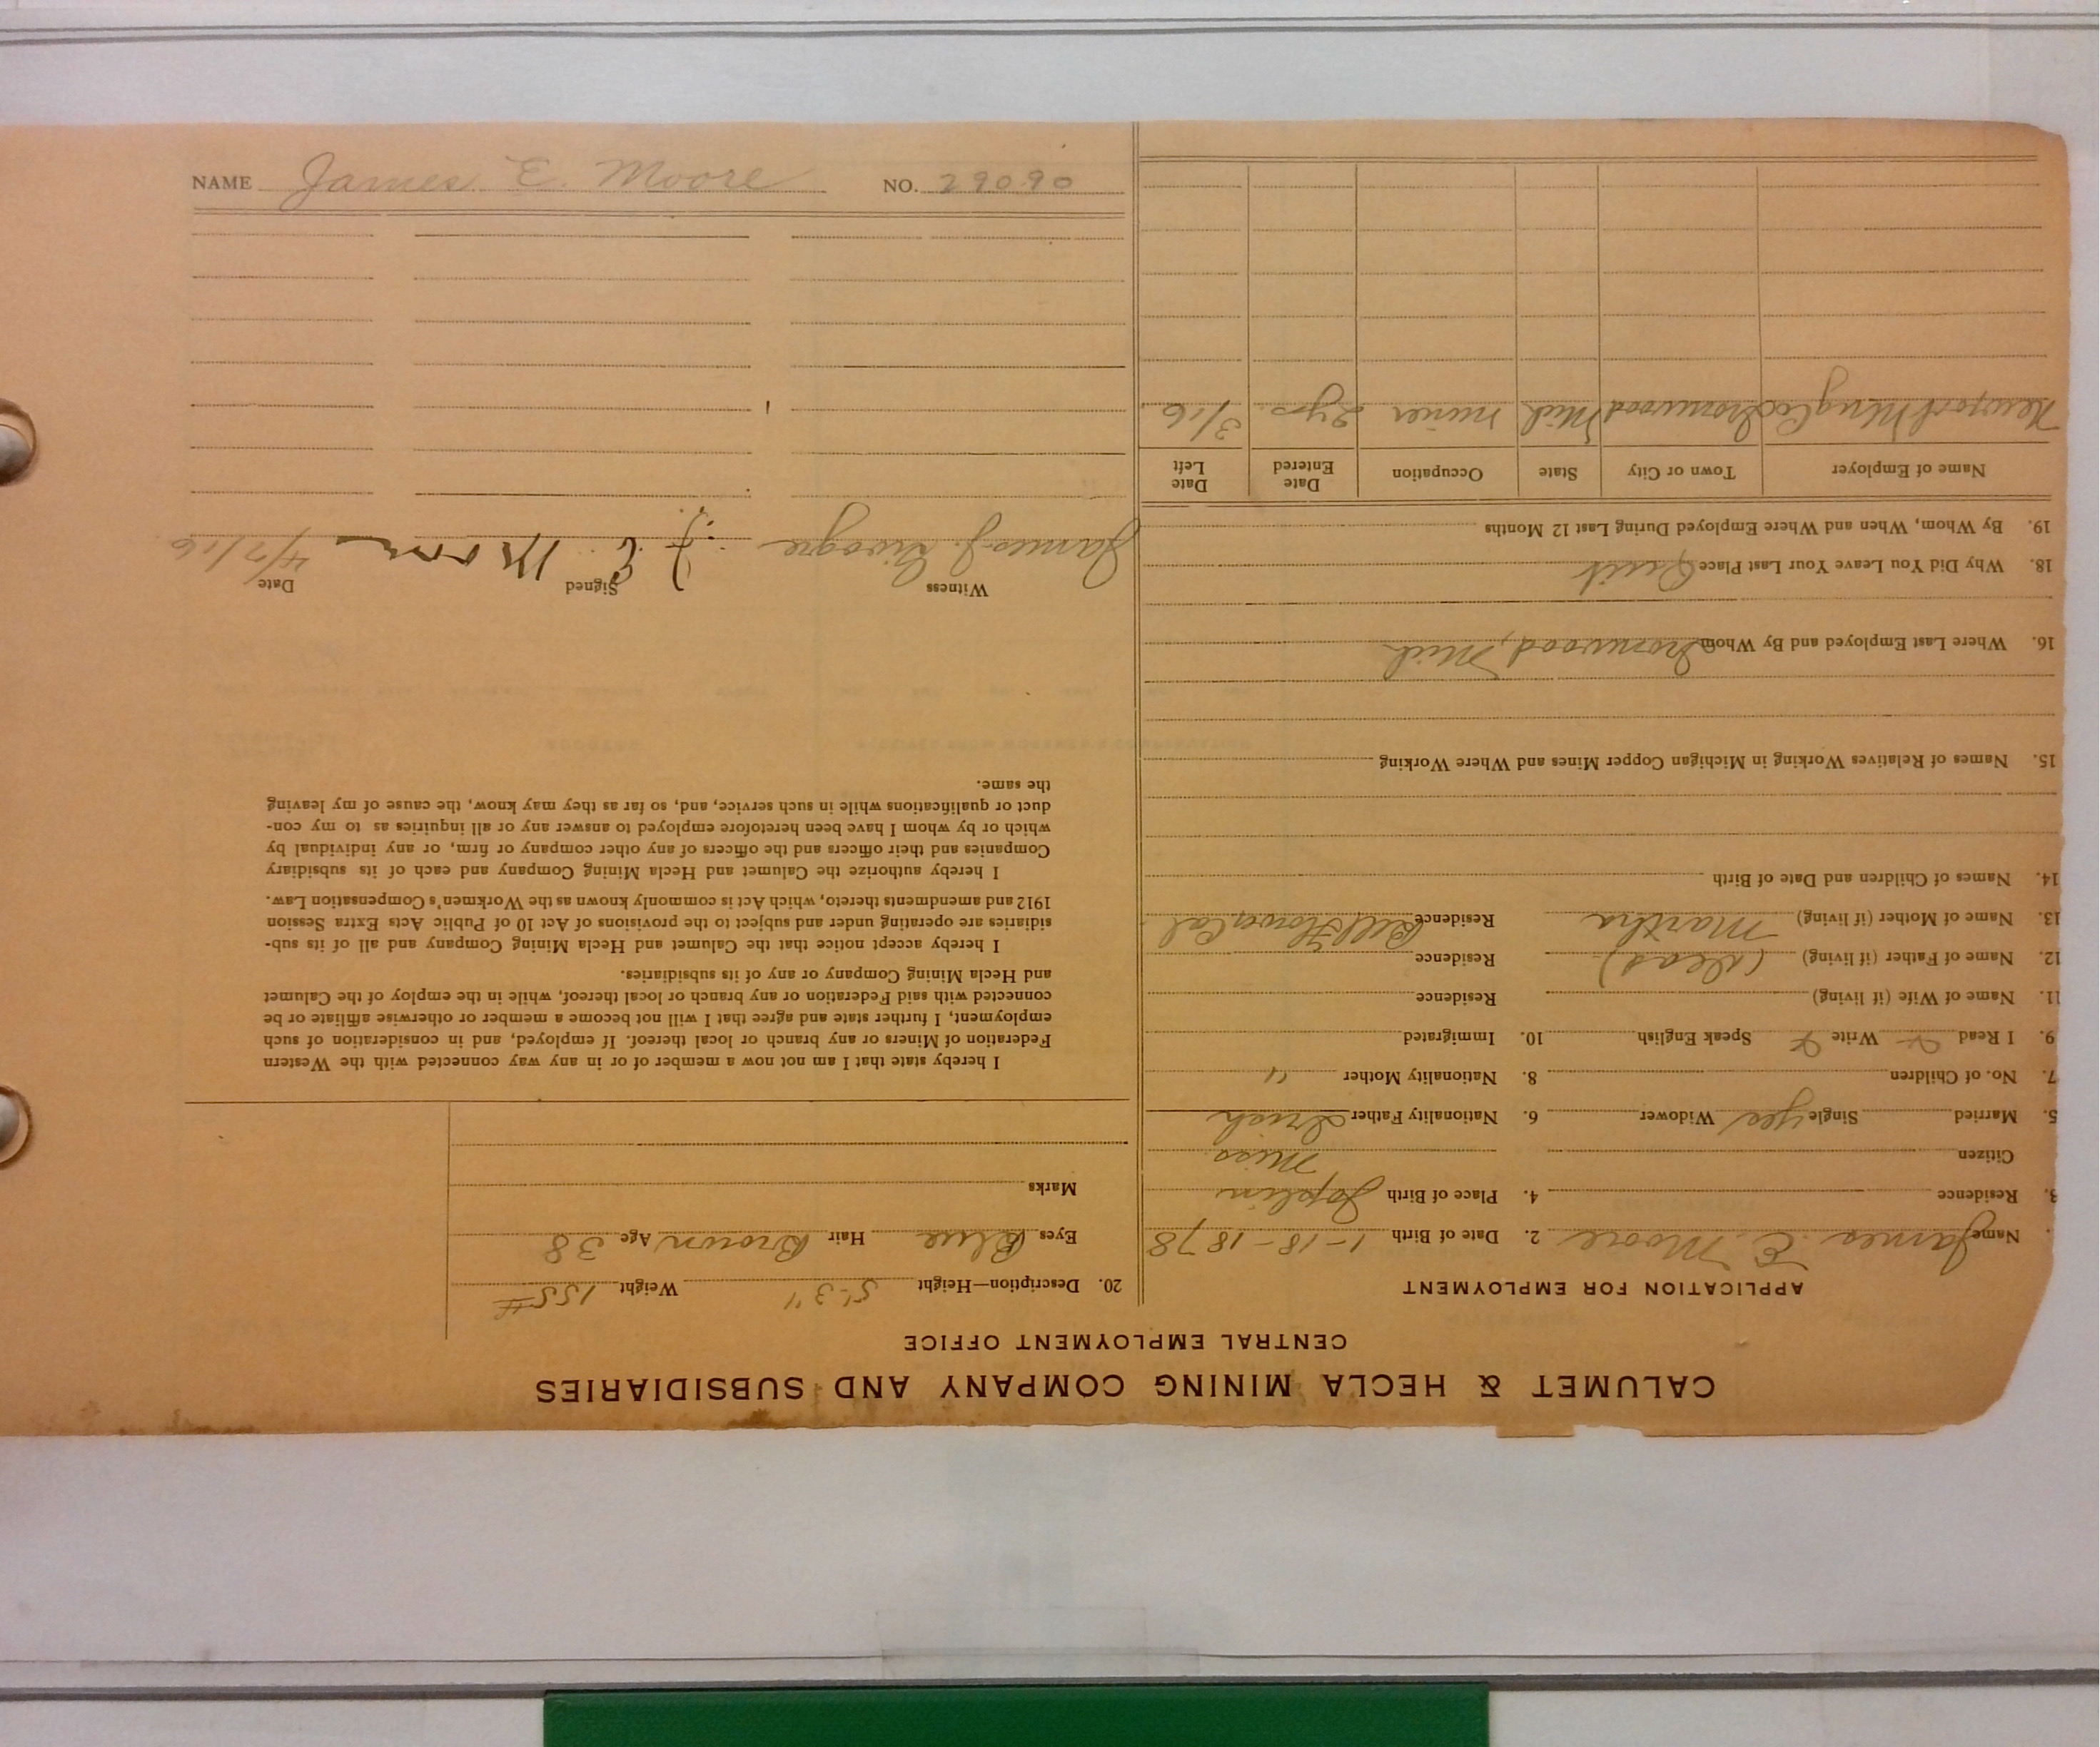 CALUMET & HECLA MINING COMPANY AND SUBSIDIARIES
CENTRAL EMPLOYMENT OFFICE
APPLICATION FOR EMPLOYMENT
Name James E. Moore 2. Date of Birth 1-18-1878
3. Residence 4. Place of Birth Joplin
Citizen Miss.
5. Married Single yes Widower 6. Nationality Father Irish
7. No. of Children 8. Nationality Mother "
9. I Read Write Speak English 10. Immigrated
11. Name of Wife (if living) Residence
12. Name of Father (if living) (Dead) Residence
13. Name of Mother (if living) Martha Residence Bell Flower Cal
14. Names of Children and Date of Birth
15. Names of Relatives Working in Michigan Copper Mines and Where Working
16. Where Last Employed and By Whom Ironwood, Mich
18. Why Did You Leave Your Last Place Quit
19. By Whom, When and Where Employed During Last 12 Months
Name of Employer Town or City State Occupation Date Entered Date Left
Newport Mng Co Ironwood Mich miner 2 yrs. 3/16
20. Description—Height 5'-3" Weight 155#
Eyes Blue Hair Brown Age 38
Marks
I hereby state that I am not now a member of or in any way connected with the Western
Federation of Miners or any branch or local thereof. If employed, and in consideration of such
employment, I further state and agree that I will not become a member or otherwise affiliate or be
connected with said Federation or any branch or local thereof, while in the employ of the Calumet
and Hecla Mining Company or any of its subsidiaries.
I hereby accept notice that the Calumet and Hecla Mining Company and all of its sub-
sidiaries are operating under and subject to the provisions of Act 10 of Public Acts Extra Session
1912 and amendments thereto, which Act is commonly known as the Workmen's Compensation Law.
I hereby authorize the Calumet and Hecla Mining Company and each of its subsidiary
Companies and their officers and the officers of any other company or firm, or any individual by
which or by whom I have been heretofore employed to answer any or all inquiries as to my con-
duct or qualifications while in such service, and, so far as they may know, the cause of my leaving
the same.
Witness Signed Date
James J. J. E. Moore 4/7/16
NAME James E. Moore NO. 29090